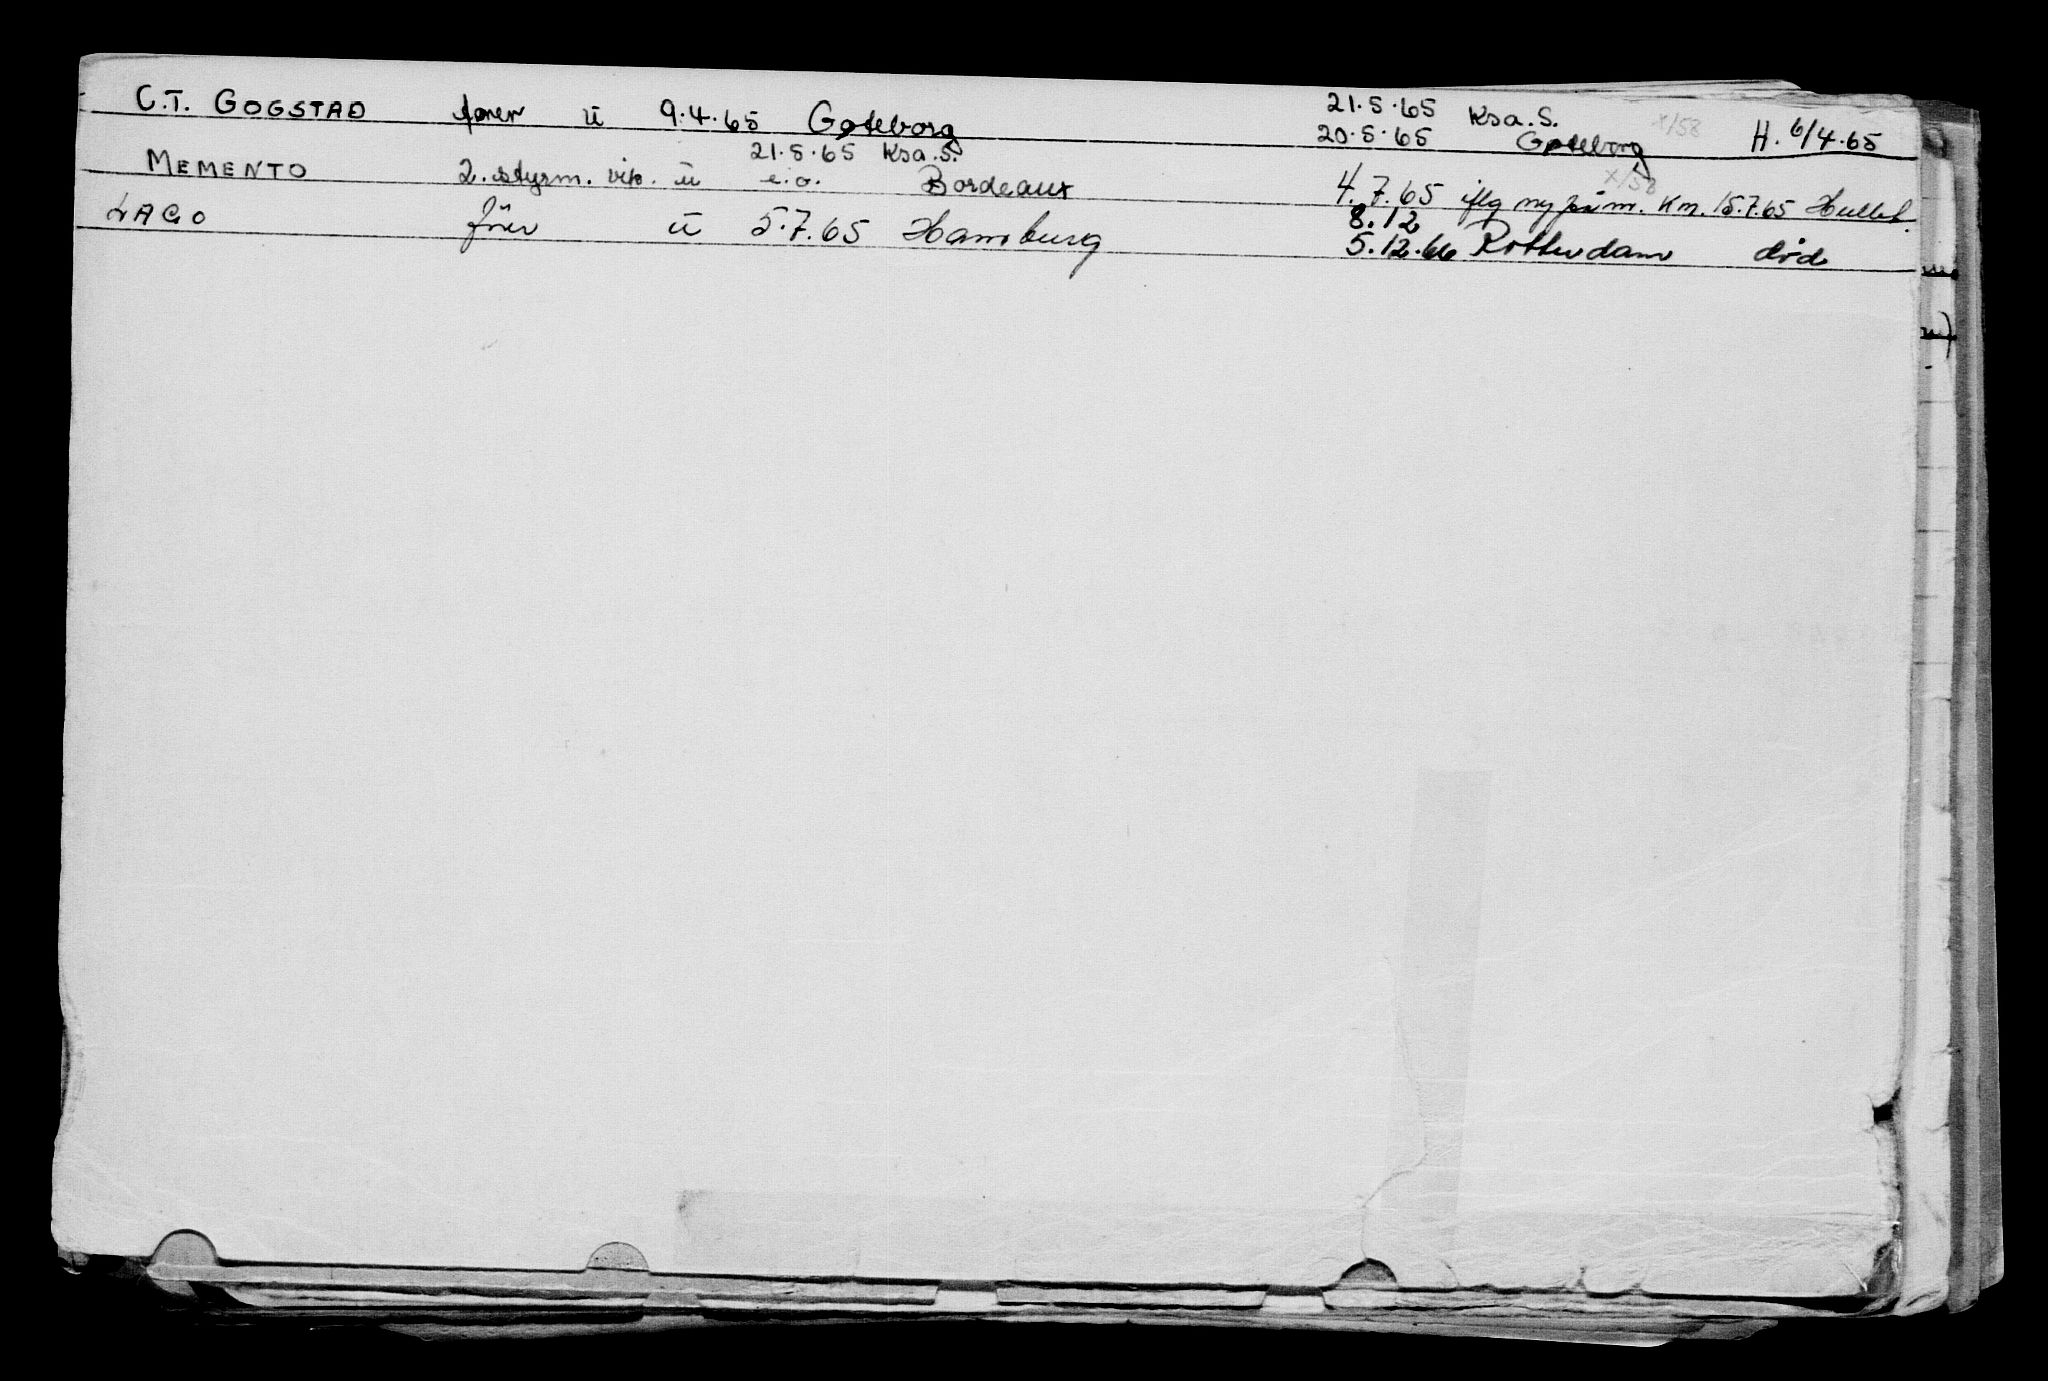 21.5.65 Ksa.S.
C.T. GOGSTAD fører u 9.4.65 Gøteborg 20.5.65 Gøteborg X/58 H. 6/4.65
21.5.65 Ksa.S.
MEMENTO 2. styrm. vik. u e.o. Bordeaux 4.7.65 iflg X/58 Km. 15.7.65
8.12
LAGO fører u 5.7.65 Hamburg 5.12.66 Rotterdam død